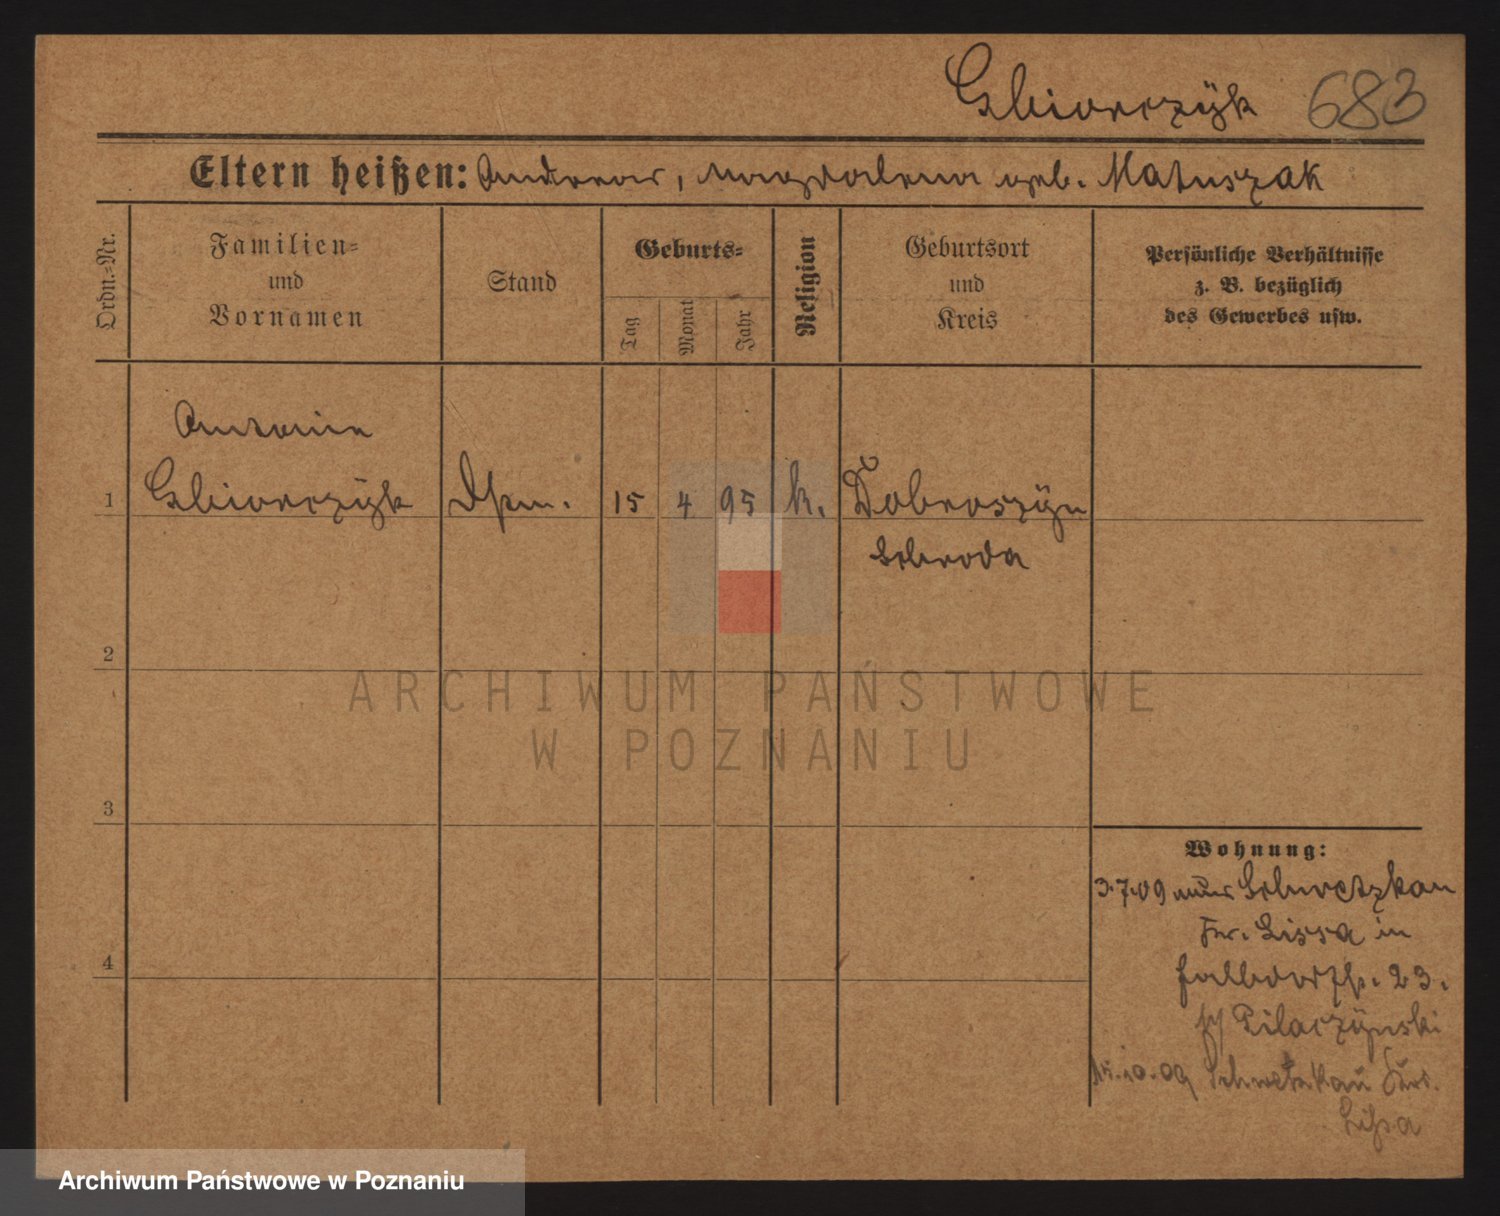 Gbiorczÿk 683
Eltern heißen: Andreas, Magdalena geb. Matuszak
Ordn.-Nr.
Familien-
und
Vornamen
Stand
Geburts-
Tag
Monat
Jahr
Religion
Geburtsort
und
Kreis
Persönliche Verhältnisse
z. B. bezüglich
des Gewerbes usw.
Antonie
1 Gbiorczÿk 15 4 95 k. Dobroszÿn
Schroda
2
ARCHIWUM PAŃSTWOWE
W POZNANIU
3
Wohnung:
3.7.09 Schwetzkau
Kr. Lissa in
23.
Pilaczÿnski
10.09 Schwetzkau
Lissa
4
Archiwum Państwowe w Poznaniu